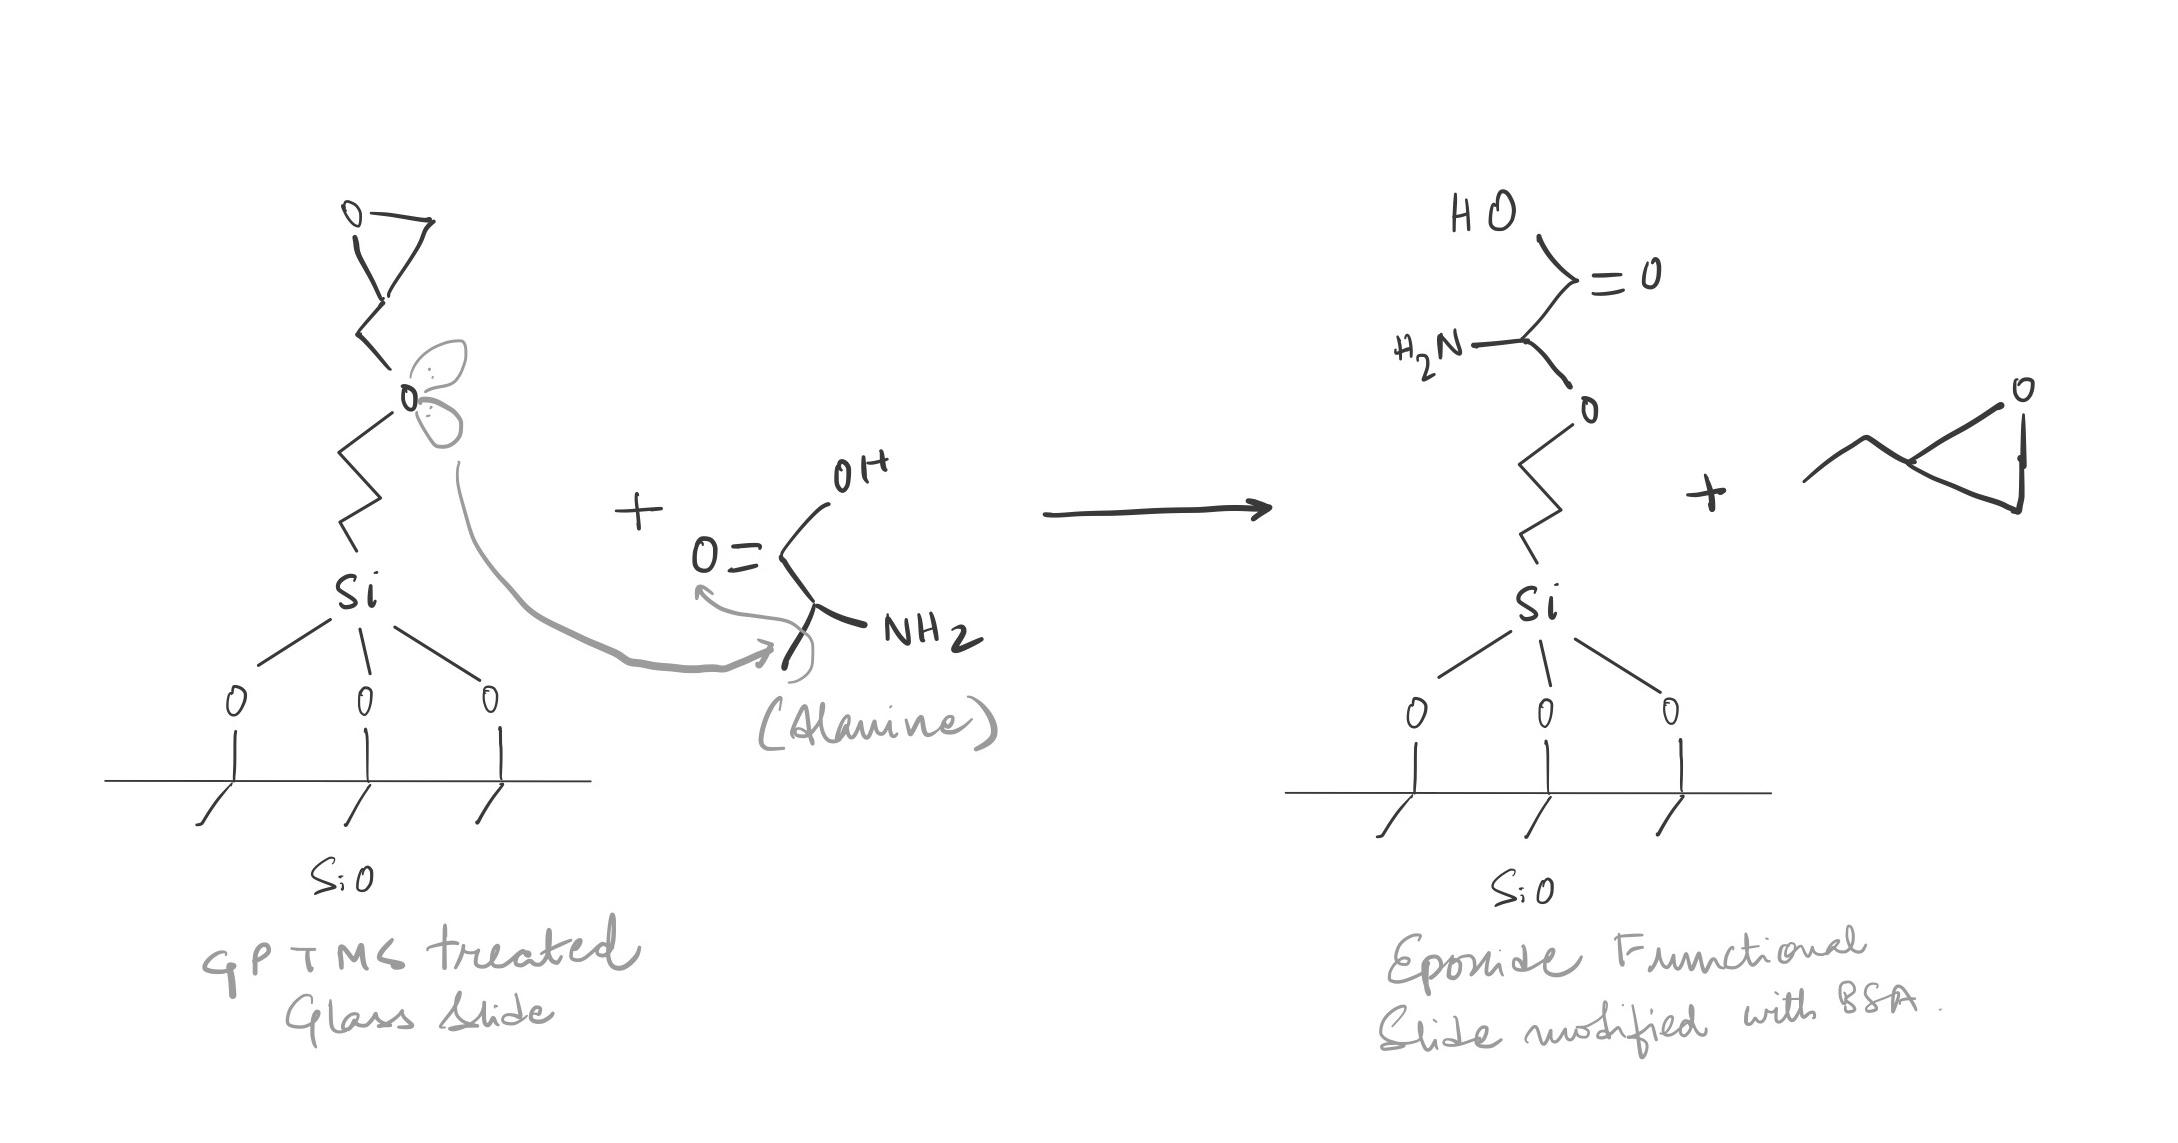 O
O
Si
O O O
SiO
GPTMS treated
Glass Slide
+
OH
O=
NH2
(Alanine)
HO
=O
H2N
O
Si
O O O
SiO
Epoxide Functional
Slide modified with BSA.
+
O